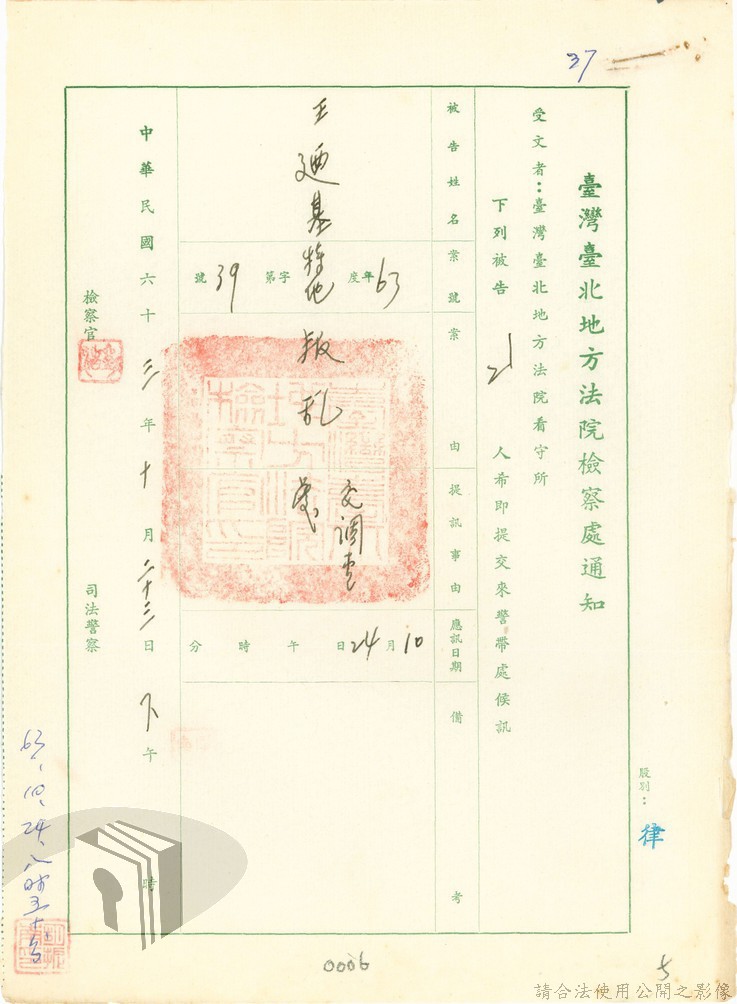 37
臺灣臺北地方法院檢察處通知
股別：律
受文者：臺灣臺北地方法院看守所
下列被告 人希即提交來警帶處候訊
被告姓名
王廼基
案號
63年度特地字第39號
案由
叛乱
提訊事由
交調查
應訊日期
10月24日 午 時 分
備考
中華民國六十三年十月二十三日下午 時
檢察官
司法警察
63、10、24、八時五十分
0006
5
請合法使用公開之影像